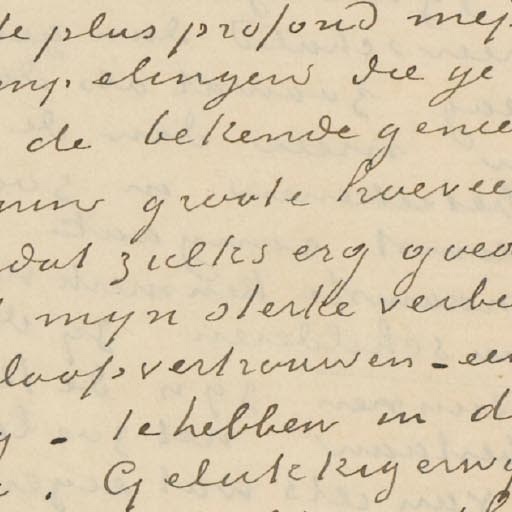 le plus profond mep
mpelingen die ge
de bekende genie
groote hoevee
dat zulks erg goed
mijn sterke verbe
loop vertrouwen - een
- te hebben in d
. Gelukkigerwy